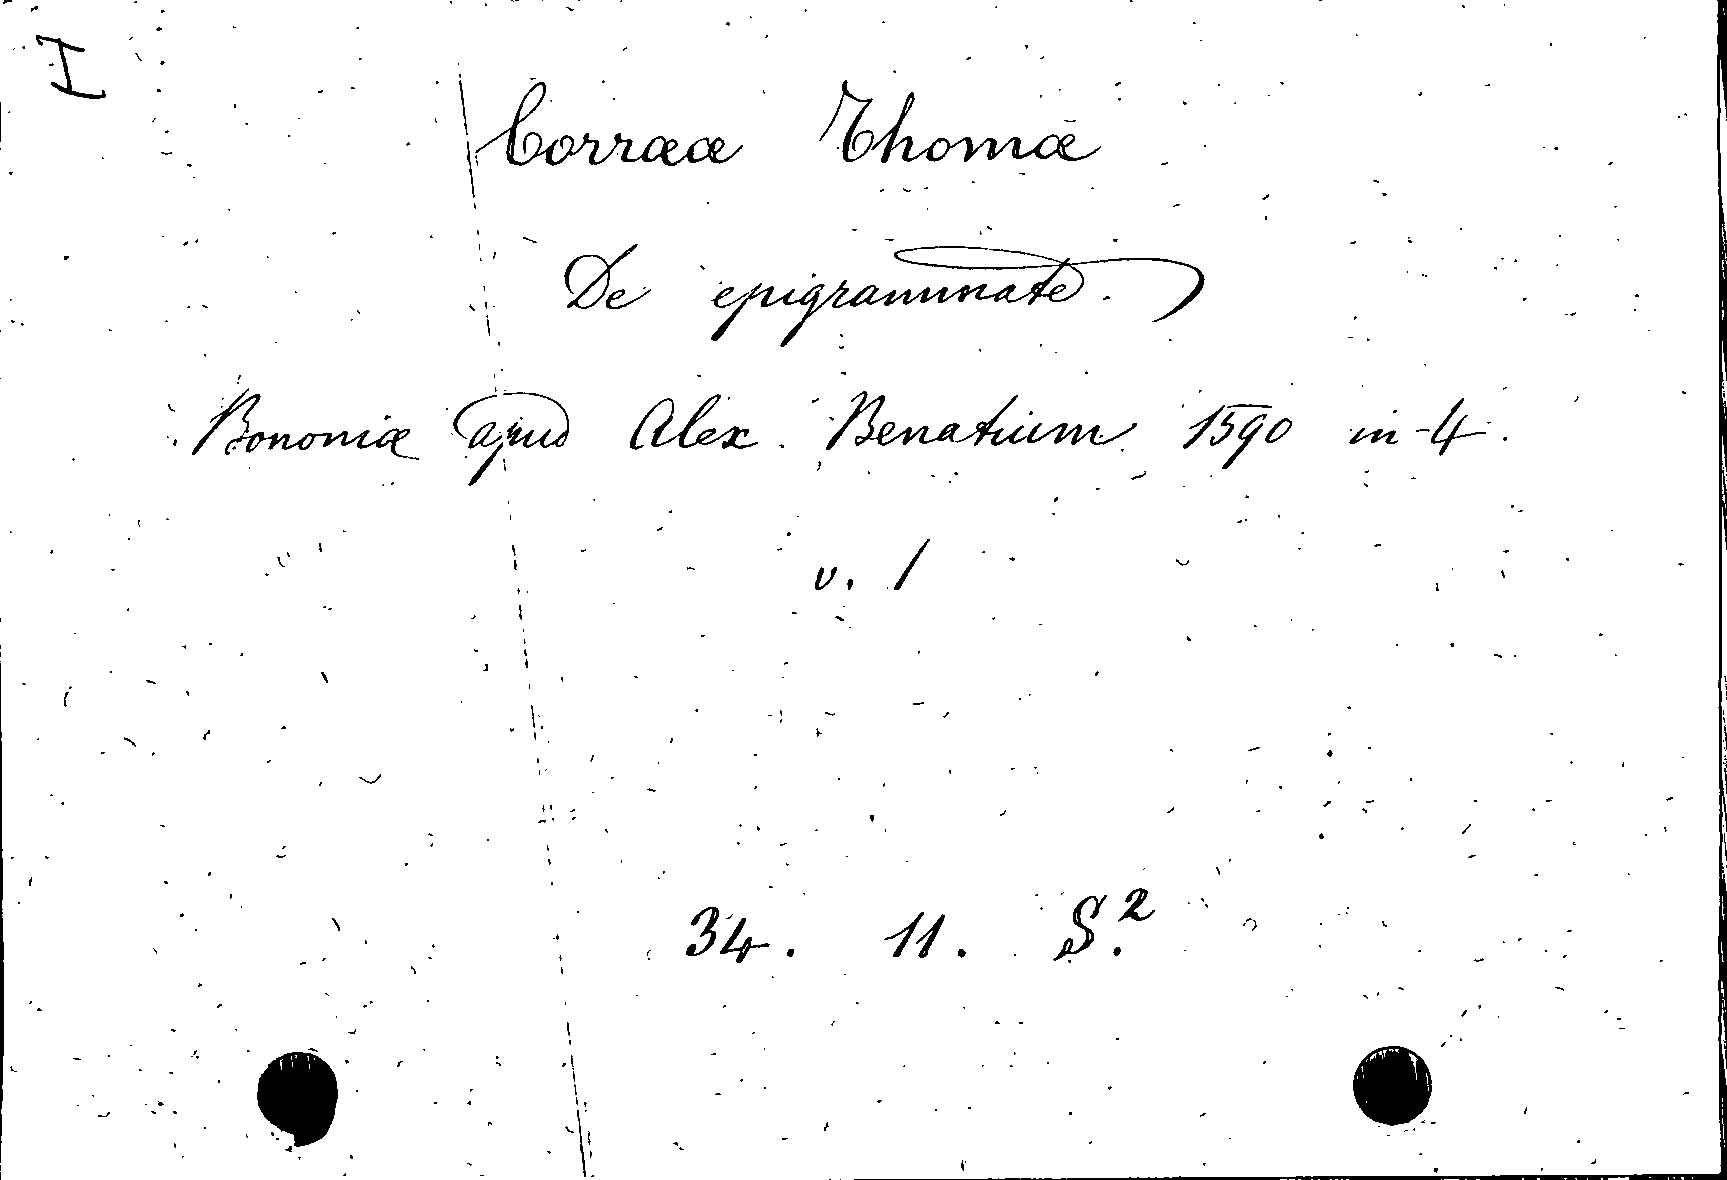 I
Corrææ Thomæ
De epigrammate.
Bononiæ apud Alex. Benatium 1590 in-4.
v. 1
34. 11. S.²